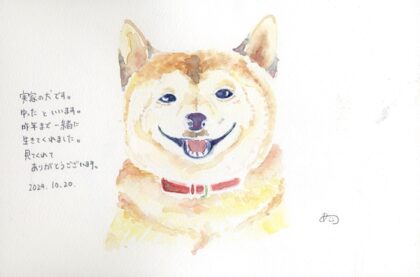 実家の犬です。
ゆったといいます。
昨年まで一緒に
生きてくれました。
見てくれて
ありがとうございます。
2024.10.20.